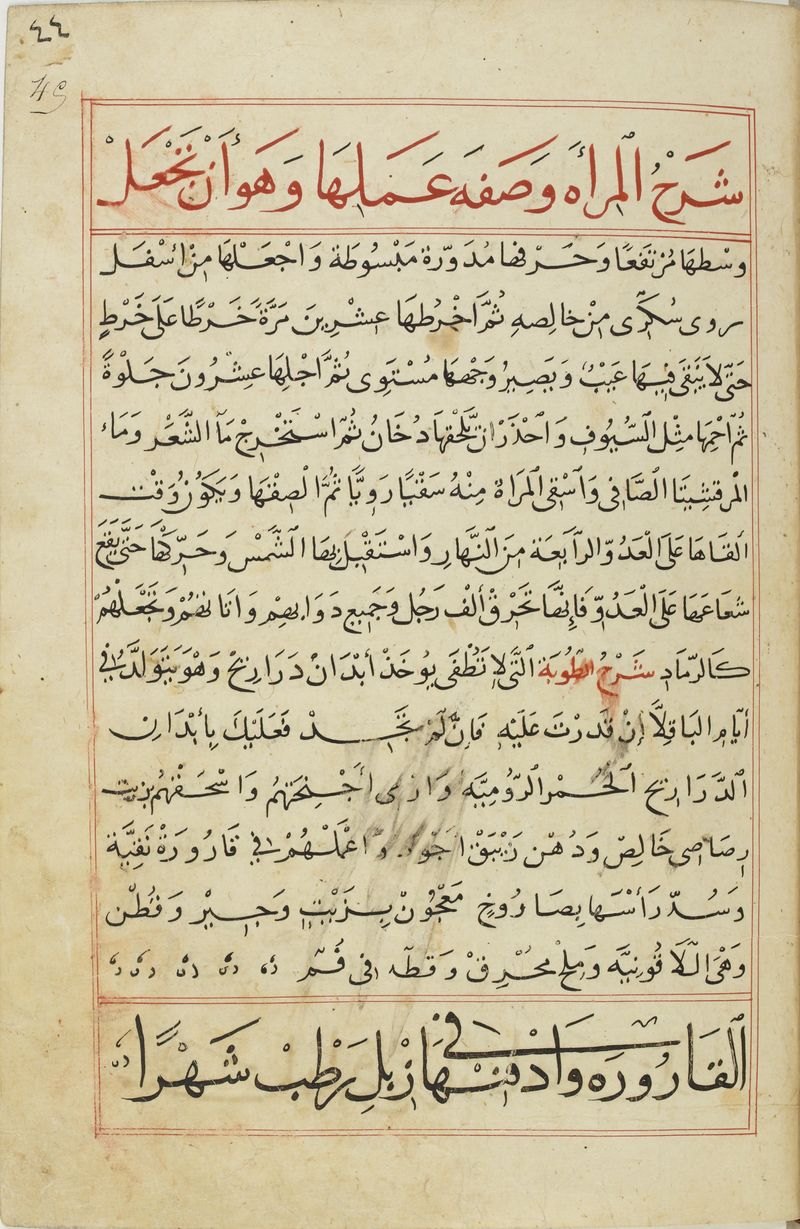 ٤٤
49
شَرْحُ الْمِرأَه وَصَفَه عَمَلِهَا وَهَوأَنْ تَجْعَلْ
وسْطهَا مُرتفَعًا وَحَرْفها مُدَوّرة مَبْسُوطَة وَاجْعَلْهَا مِنْ اسْفَل
روى سُكّرى مِنْ خالِصهِ ثُمَّ اخْرُطهَا عِشْرِينَ مَرَّةً خَرْطًا عَلَى خَرْطٍ
حَتّى لاَ يَبْقَى فِيهَا عَيْبٌ وَيَصِيرُ وَجْههَا مُسْتَوِى ثُمَّ اجْلِهَا عِشْرُونَ جَلْوَةً
ثُمّ احْمِهَا مِثْل السُّيُوفِ وَاحْذَرْ ان يَلْحَقهَا دُخَانُ ثُمّ اسْتَخْرِجْ مَآ الشَّعَرْ وَمَاءَ
الْمَرقَشِيتَا الصَّافِى وَاسْقِى الْمَرَاة مِنْهُ سَقْيًا رَوِيًّا ثُمَّ الْصِقْهَا وَيَكَوُنُ وَقْت
القَاهَا عَلَى الْعَدُوّ الرآبَعَة مِنَ النَّهَارِ وَاسْتَقْبِل بهَا الشَّمْسَ وَحَرّكْهَا حَتَّى يَقَعَ
شعَاعهَا عَلَى الْعَدُوّ فَإِنّهَا تَحَرْقْ أَلْف رَجُل وَجَمِيع دَوَابهِمْ وَاثَاثهُمْ وَتَجْعَلْهُمْ
كَالرّمَادِ شَرْحُ الطُوبَة الَّتِى لا تَطْفَى يُوخَذْ أبْدَانْ دَرَارِيحْ وَهْوَ يَتَوَلّدُ فِى
أيّامِ البَاقِلاَّ إنْ قَدَرْتَ عَلَيْهِ فَإنْ لَمْ تَجِدْ فَعَلَيْكَ بِأبْدَانِ
الدَّرَارِيح الحُمْر الرّومِيَّه وَارْمى أجْنِحَتهُمْ وَاسْحَقْهُم بزيت
رِصَاصِى خَالِصْ وَدُهْن زَيْبَقْ اجْوَد وَاعْمَلْهُمْ فِى قَارُورَةْ نَقِيَّة
وَسُدّ رَأسْهَا بِصَارُوخٍ مَعْجُونْ بِزَيْتٍ وَجِيرْ وَقُطْن
وَهْىَ الَلاّقُونِيَّه وَمِلحْ مُحْرِقْ وَقطّه فى فُمّ
الْقَارُورَه وَادْفِنْهَا فِى زبْلِ رَطْبْ شَهْرًا